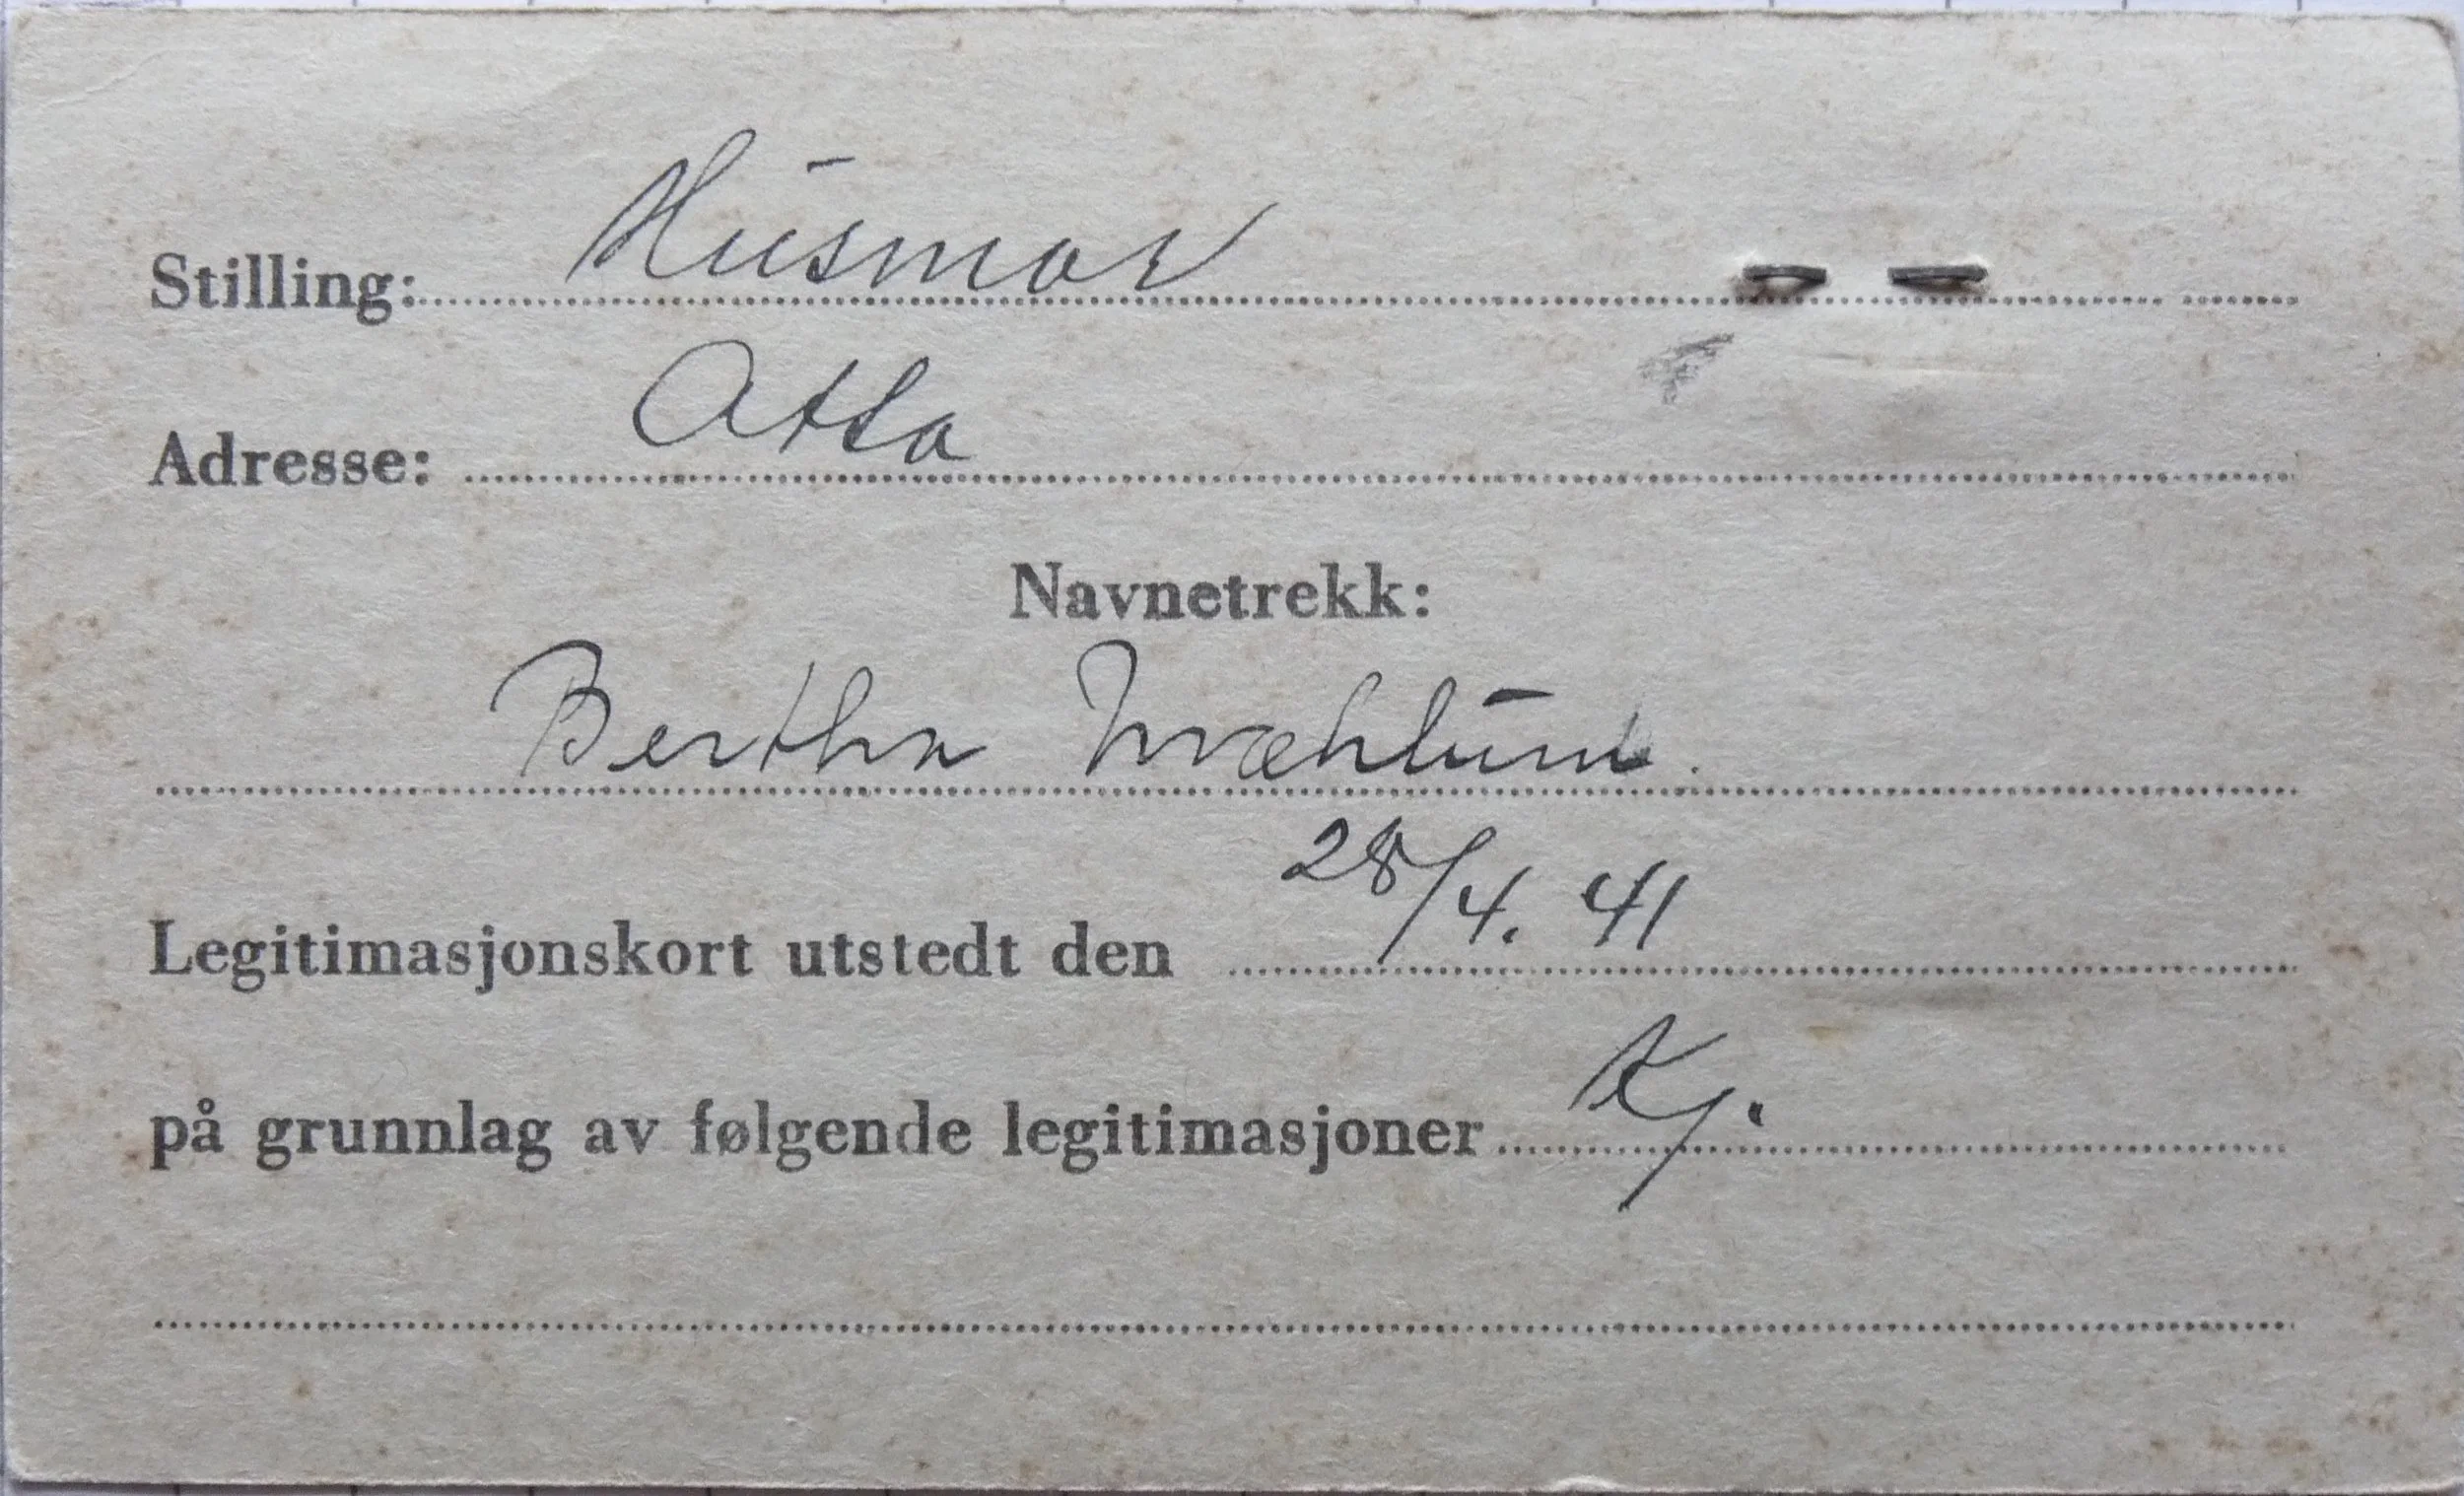 Stilling: Husmor
Adresse: Otta
Navnetrekk:
Bertha Mæhlum.
Legitimasjonskort utstedt den 28/4. 41
på grunnlag av følgende legitimasjoner Kj.